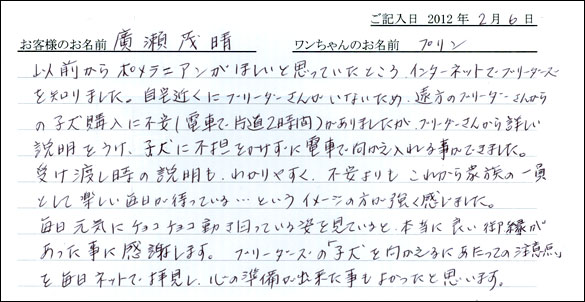 ご記入日 2012年 2月 6日
お客様のお名前 廣瀬茂晴 ワンちゃんのお名前 プリン
以前からポメラニアンがほしいと思っていたところ インターネットでブリーダーズ
を知りました。自宅近くにブリーダーさんがいないため、遠方のブリーダーさんから
の子犬購入に不安(電車で片道2時間)がありましたが、ブリーダーさんから詳しい
説明をうけ、子犬に不担をかけずに電車で向かえ入れる事ができました。
受け渡し時の説明も、わかりやすく、不安よりも これから家族の一員
として楽しい毎日が待っている…というイメージの方が強く感じました。
毎日元気にチョコチョコ動き回っている姿を見ていると、本当に良い御縁が
あった事に感謝します。 ブリーダーズの「子犬を向かえるにあたっての注意点」
を毎日ネットで拝見し、心の準備が出来た事もよかったと思います。